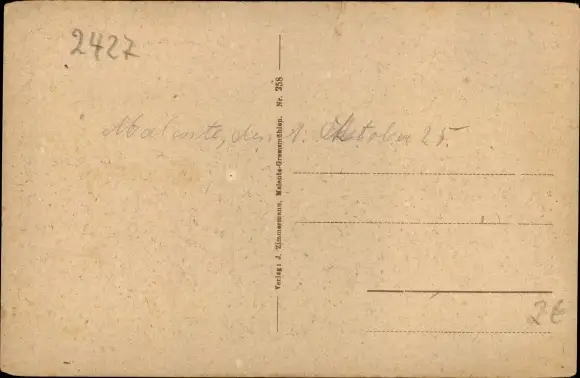 2427
Malente, den 1. Oktober 25.
Verlag: J. Zimmermann, Malente-Gremsmühlen. Nr. 258
2€